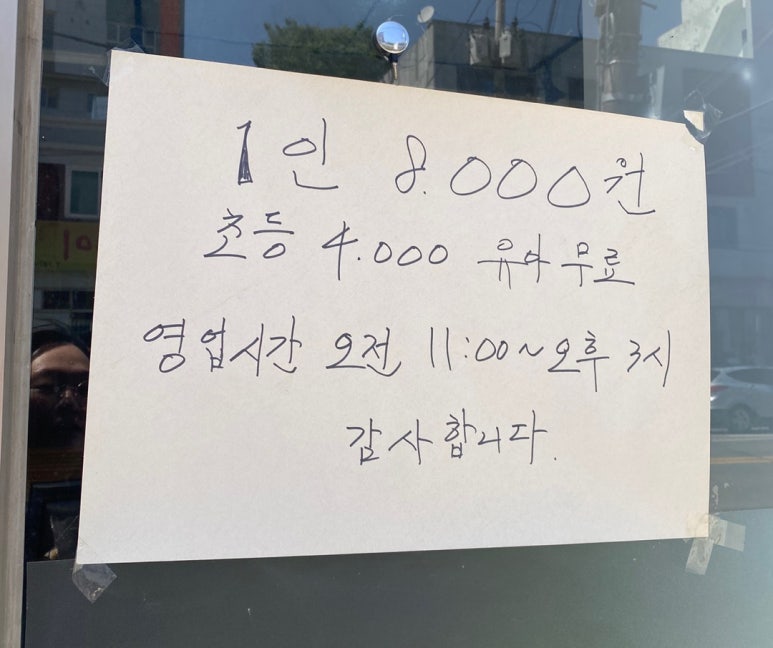 1인 8.000원
초등 4.000 유아 무료
영업시간 오전 11:00~오후 3시
감사합니다.